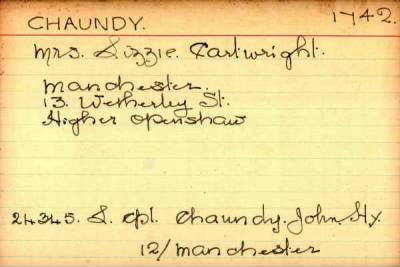 CHAUNDY. 1742.
Mrs. Lizzie. Cartwright.
Manchester.
13. Wetherley St.
Higher Openshaw
24345. L. Cpl. Chaundy. John. Hy.
12/Manchester